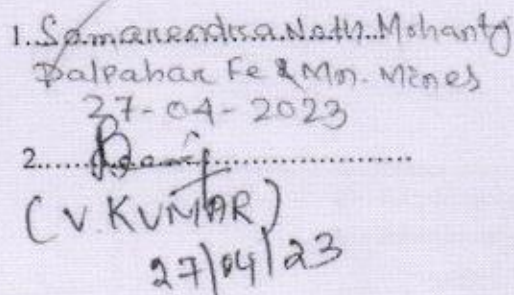 1. Samarendra Nath Mohanty
Dalpahar Fe & Mn. Mines
27-04-2023
2.
(V. KUMAR)
27/04/23